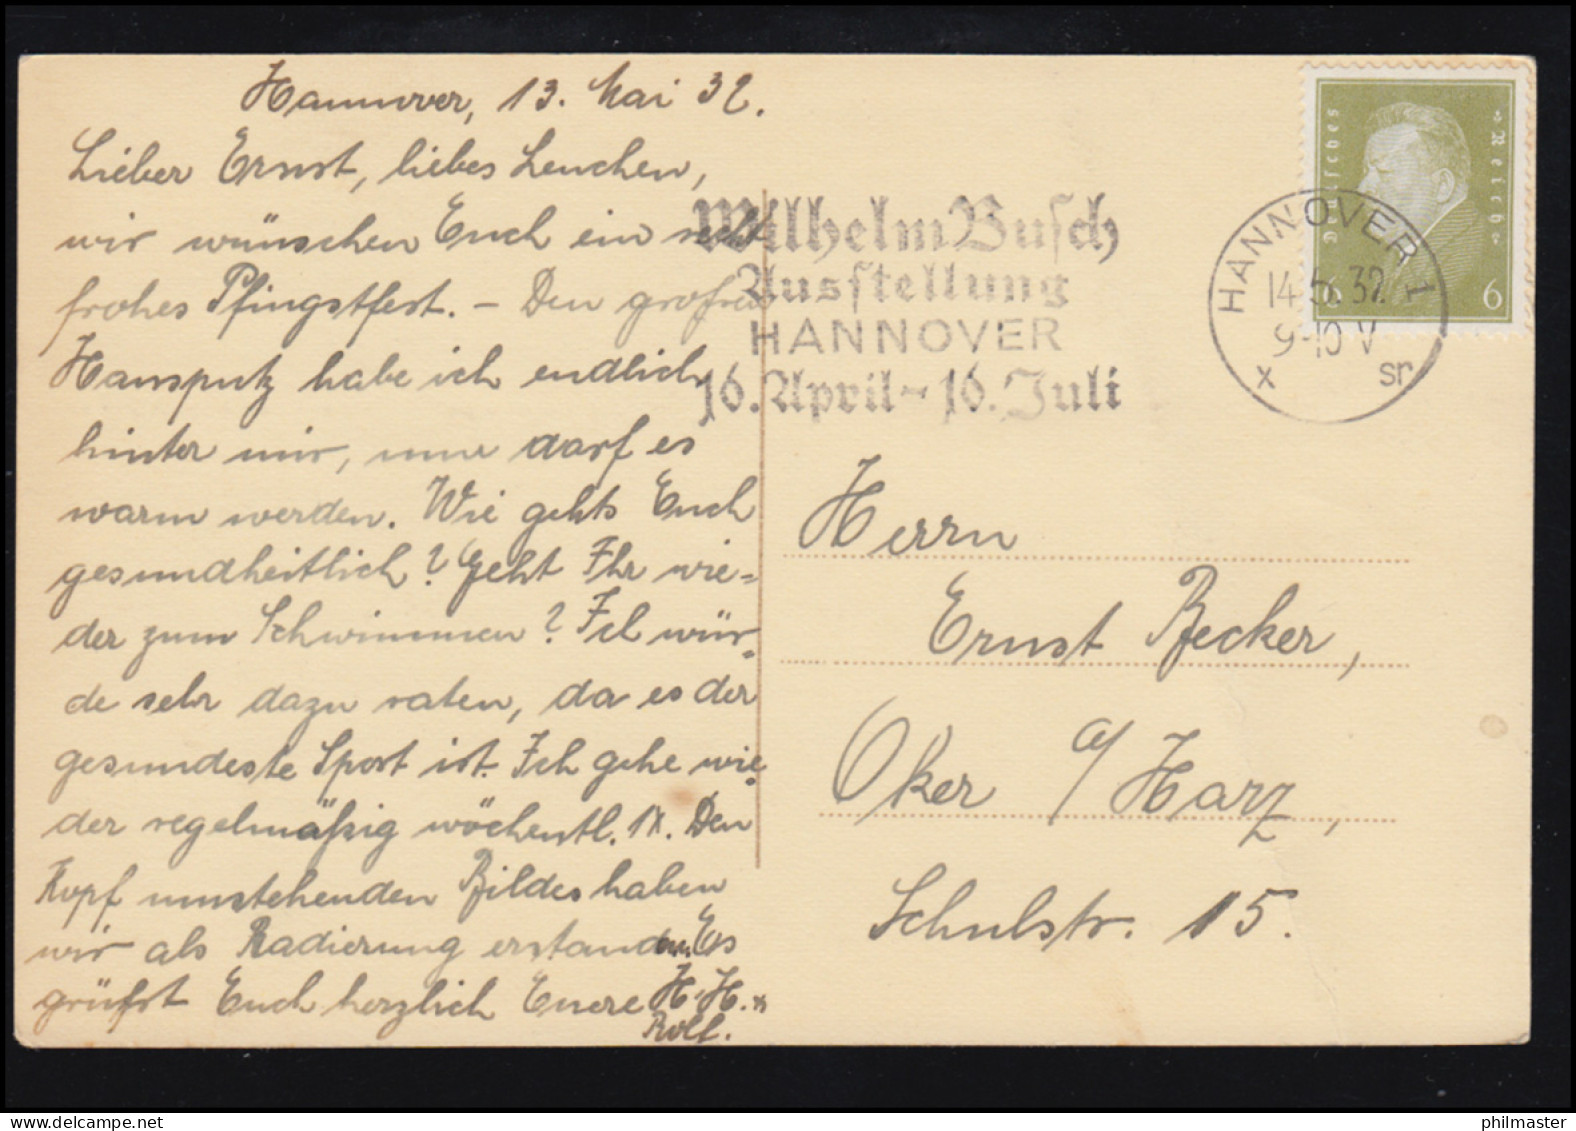 Hannover, 13. Mai 32.
Lieber Ernst, liebes Lenchen,
wir wünschen Euch ein recht
frohes Pfingstfest. – Den großen
Hausputz habe ich endlich
hinter mir, nun darf es
warm werden. Wie gehts Euch
gesundheitlich? Geht Ihr wie=
der zum Schwimmen? Ich wür=
de sehr dazu raten, da es der
gesundeste Sport ist. Ich gehe wie=
der regelmäßig wöchentl. 1x. Den
Kopf umstehenden Bildes haben
wir als Radierung erstanden. Es
grüßt Euch herzlich Euere H. H. +
Rolf.
Wilhelm Busch
Ausstellung
HANNOVER
16. April - 16. Juli
Deutsches Reich
6
HANNOVER 1
14.5.32.
9-10 V
x sr
Herrn
Ernst Becker,
Oker a/Harz,
Schulstr. 15.
philmaster